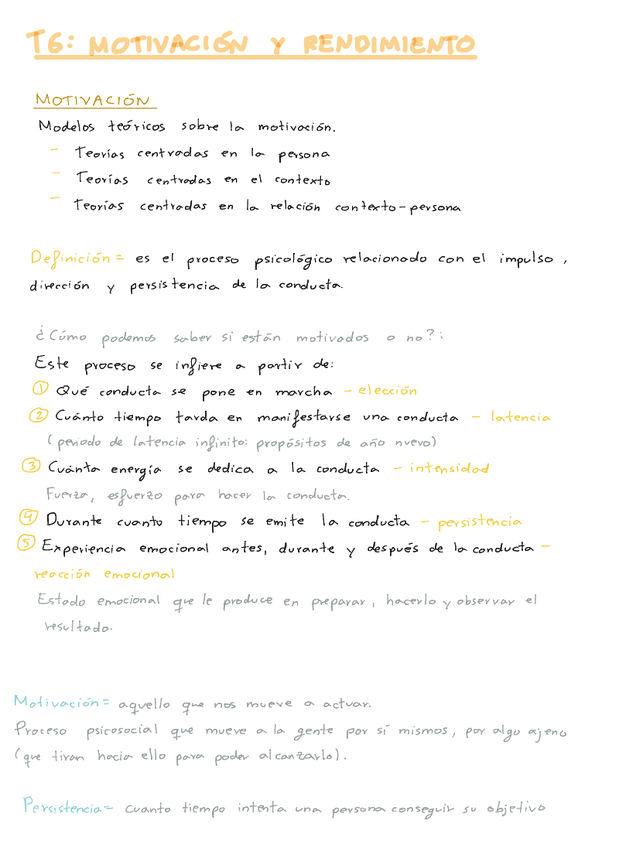 T6: MOTIVACIÓN Y RENDIMIENTO
MOTIVACIÓN
Modelos teóricos sobre la motivación.
- Teorías centradas en la persona
- Teorías centradas en el contexto
- Teorías centradas en la relación contexto-persona
Definición = es el proceso psicológico relacionado con el impulso,
dirección y persistencia de la conducta.
¿Cómo podemos saber si están motivados o no?:
Este proceso se infiere a partir de:
① Qué conducta se pone en marcha - elección
② Cuánto tiempo tarda en manifestarse una conducta - latencia
(periodo de latencia infinito: propósitos de año nuevo)
③ Cuánta energía se dedica a la conducta - intensidad
Fuerza, esfuerzo para hacer la conducta.
④ Durante cuanto tiempo se emite la conducta - persistencia
⑤ Experiencia emocional antes, durante y después de la conducta -
reacción emocional
Estado emocional que le produce en preparar, hacerlo y observar el
resultado.
Motivación = aquello que nos mueve a actuar.
Proceso psicosocial que mueve a la gente por sí mismos, por algo ajeno
(que tiran hacia ello para poder alcanzarlo).
Persistencia = cuanto tiempo intenta una persona conseguir su objetivo